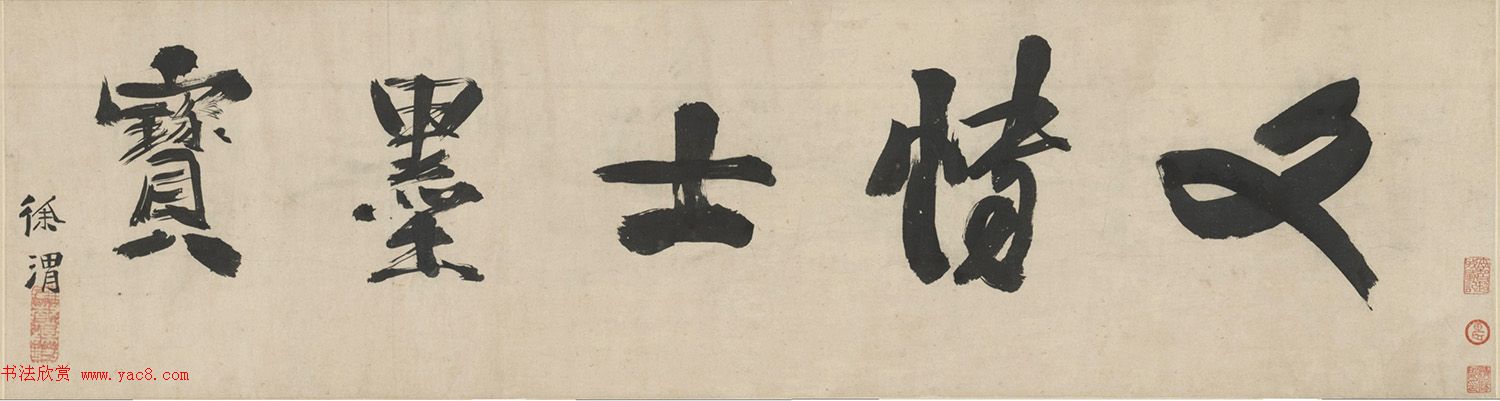 又士墨寶
徐渭
书法欣赏 www.yac8.com